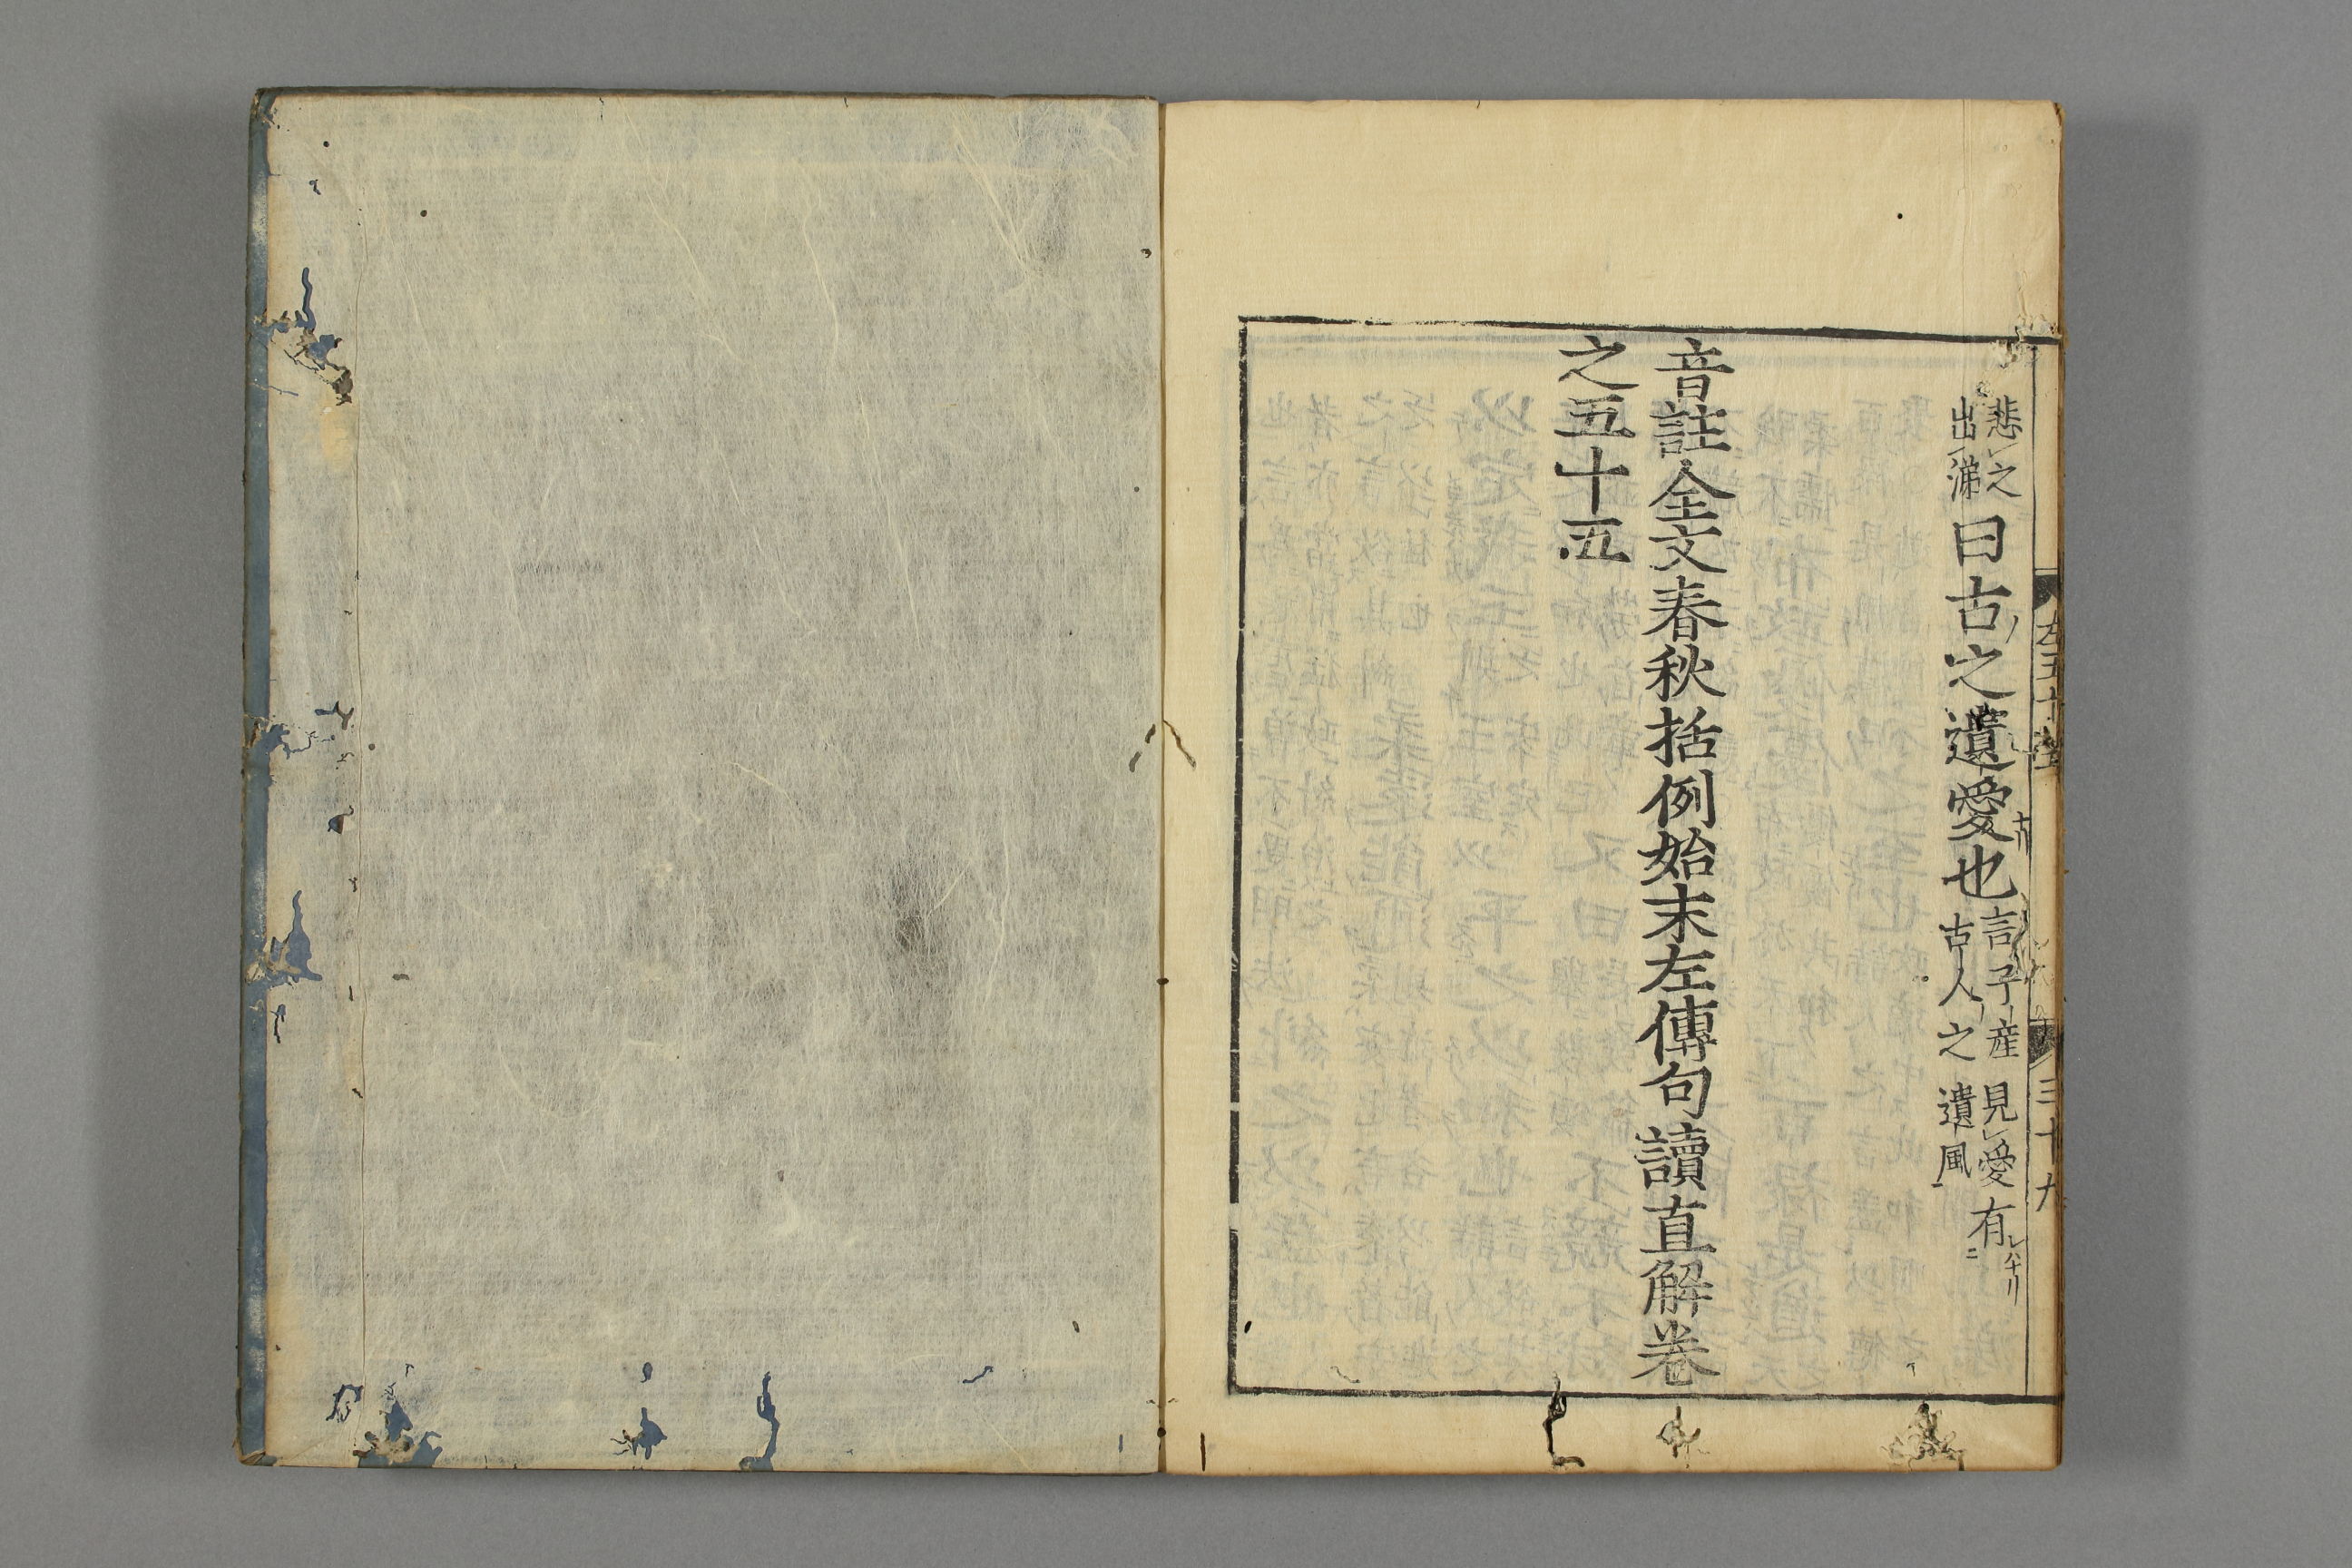 悲之出涕曰古之遺愛也言子産見愛有古人之遺風
音註全文春秋括例始末左傳句讀直解卷
之五十五